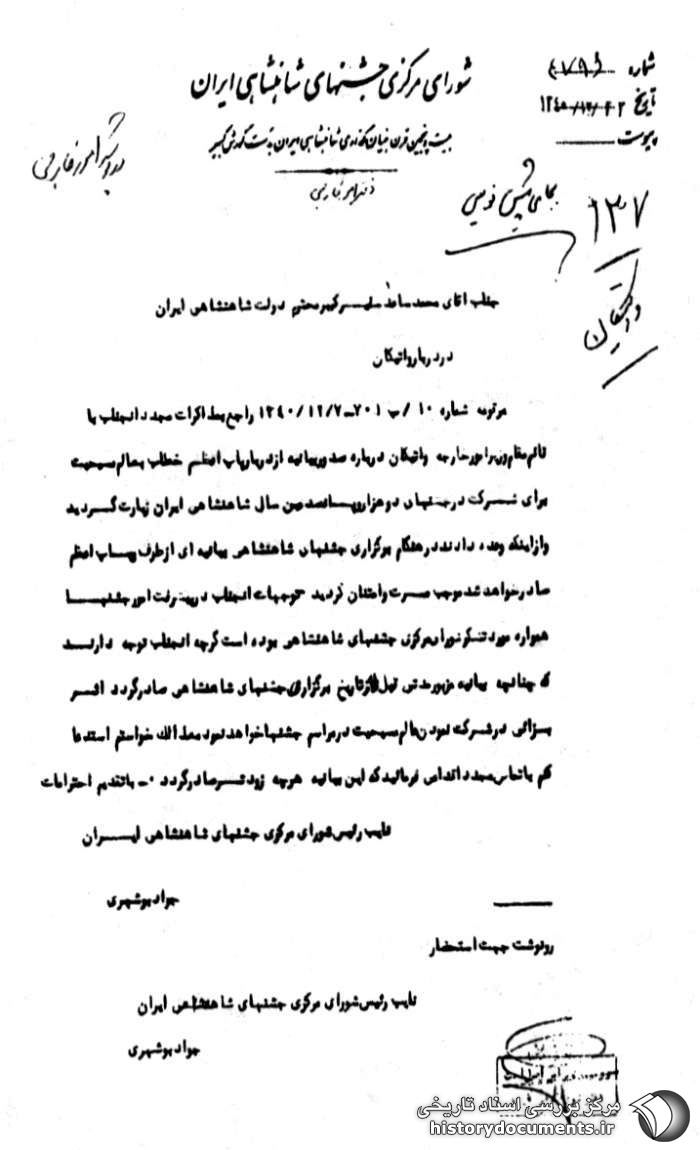 شورای مرکزی جشنهای شاهنشاهی ایران
بیست و پنجمین قرن بنیان‌گذاری شاهنشاهی ایران به دست کورش کبیر
شماره
تاریخ
پیوست
بجای پیش نویس
۱۳۷
واتیکان
جناب آقای محمد ساعد سفیر کبیر محترم دولت شاهنشاهی ایران
در دربار واتیکان
مرقومه شماره ۱۰/ب ۷۰۱-۱۳۴۰/۱۲/۷ راجع بمذاکرات مجدد آنجناب با
قائم مقام وزیر امور خارجه واتیکان درباره صدور بیانیه از دربار پاپ اعظم خطاب بعالم مسیحیت
برای شرکت در جشنهای دو هزار و پانصدمین سال شاهنشاهی ایران زیارت گردید
و از اینکه وعده دادند در هنگام برگزاری جشنهای شاهنشاهی بیانیه ای از طرف پاپ اعظم
صادر خواهد شد موجب مسرت و امتنان گردید توجهات آنجناب در پیشرفت امور جشنها
همواره مورد تشکر شورای مرکزی جشنهای شاهنشاهی بوده است گرچه آنجناب توجه دارند
که چنانچه بیانیه مزبور مدتی قبل از تاریخ برگزاری جشنهای شاهنشاهی صادر گردد اثر
بسزائی در شرکت نمودن عالم مسیحیت در مراسم جشنها خواهد نمود معذالک خواستم استدعا
کنم با تماس مجدد اقدامی فرمائید که این بیانیه هرچه زودتر صادر گردد ۰- با تقدیم احترامات
نایب رئیس شورای مرکزی جشنهای شاهنشاهی ایران
جواد بوشهری
رونوشت جهت استحضار
نایب رئیس شورای مرکزی جشنهای شاهنشاهی ایران
جواد بوشهری
مرکز بررسی اسناد تاریخی
historydocuments.ir